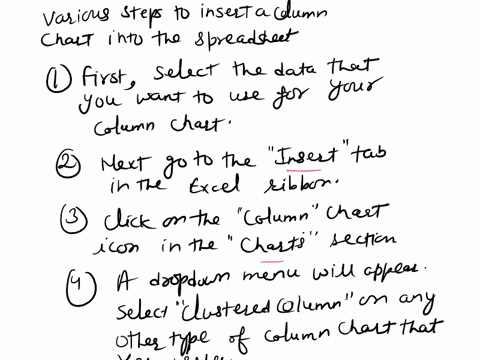 Various steps to insert a Column
Chart into the spreadsheet
① First, select the data that
you want to use for your
column chart.
② Next go to the "Insert" tab
in the Excel ribbon.
③ Click on the "Column" Chart
icon in the "Charts" section
④ A dropdown menu will appear.
Select "Clustered Column" or any
other type of column chart that